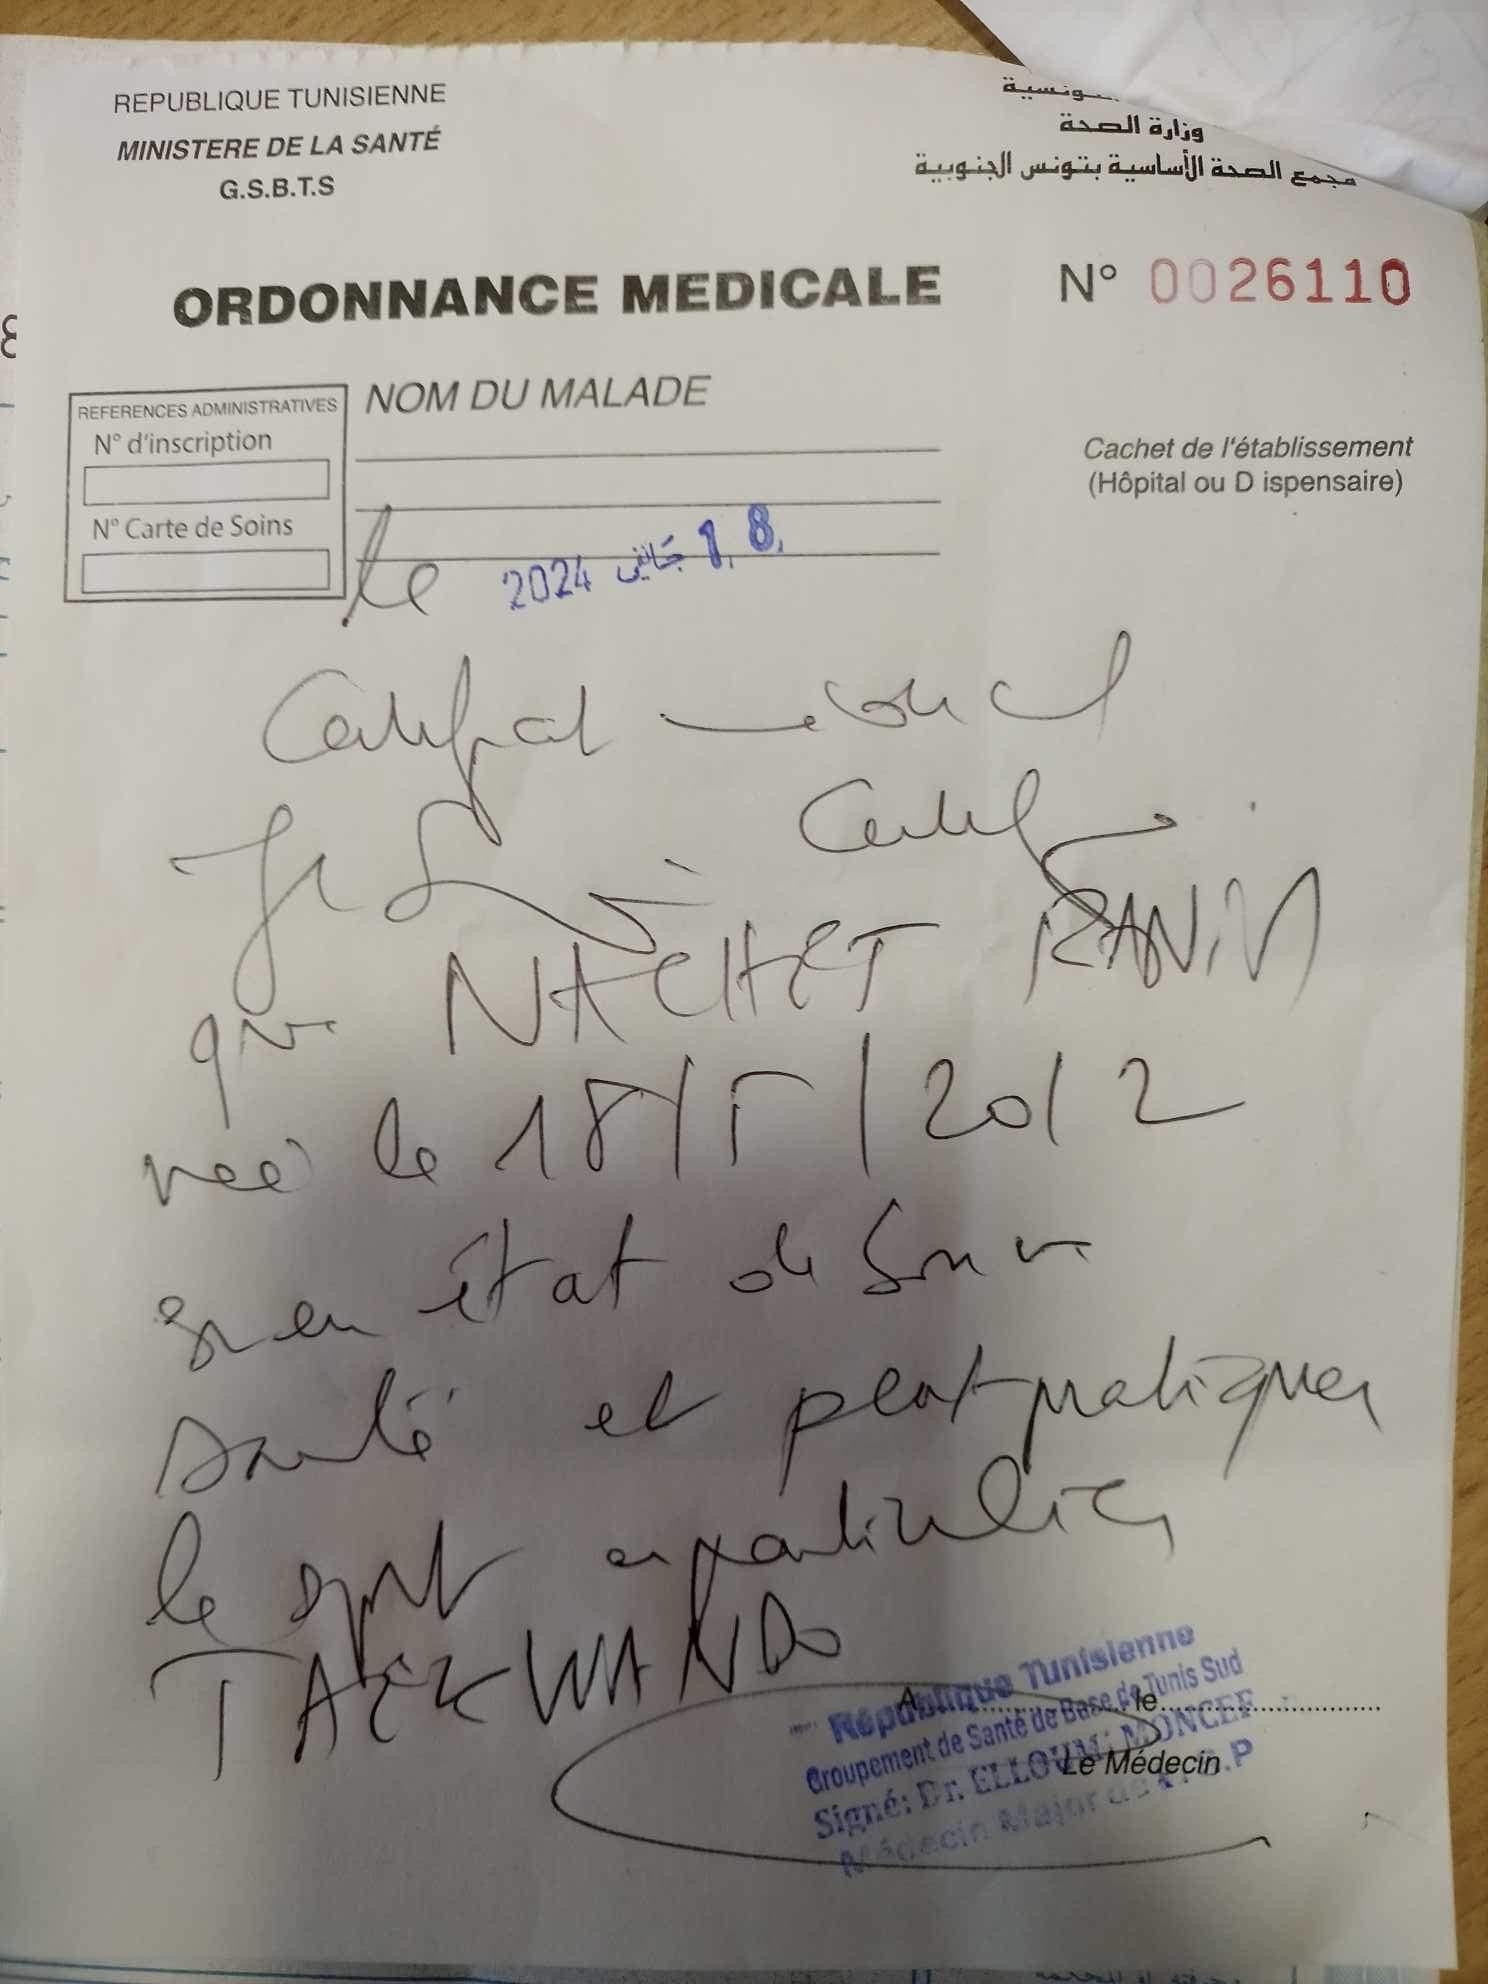 REPUBLIQUE TUNISIENNE
MINISTERE DE LA SANTÉ
G.S.B.T.S
وزارة الصحة
مجمع الصحة الأساسية بتونس الجنوبية
ORDONNANCE MEDICALE N° 0026110
REFERENCES ADMINISTRATIVES
N° d'inscription
N° Carte de Soins
NOM DU MALADE
Cachet de l'établissement
(Hôpital ou D ispensaire)
le 18 جانفي 2024
Certificat médical
Je certifie
que NACHET RANIM
née le 18/5/2012
est en état de bonne
santé et peut pratiquer
le sport en particulier
TAEKWANDO
A le
Le Médecin
République Tunisienne
Groupement de Santé de Base de Tunis Sud
Signé: Dr. ELLOUMI MONCEF
Médecin Major